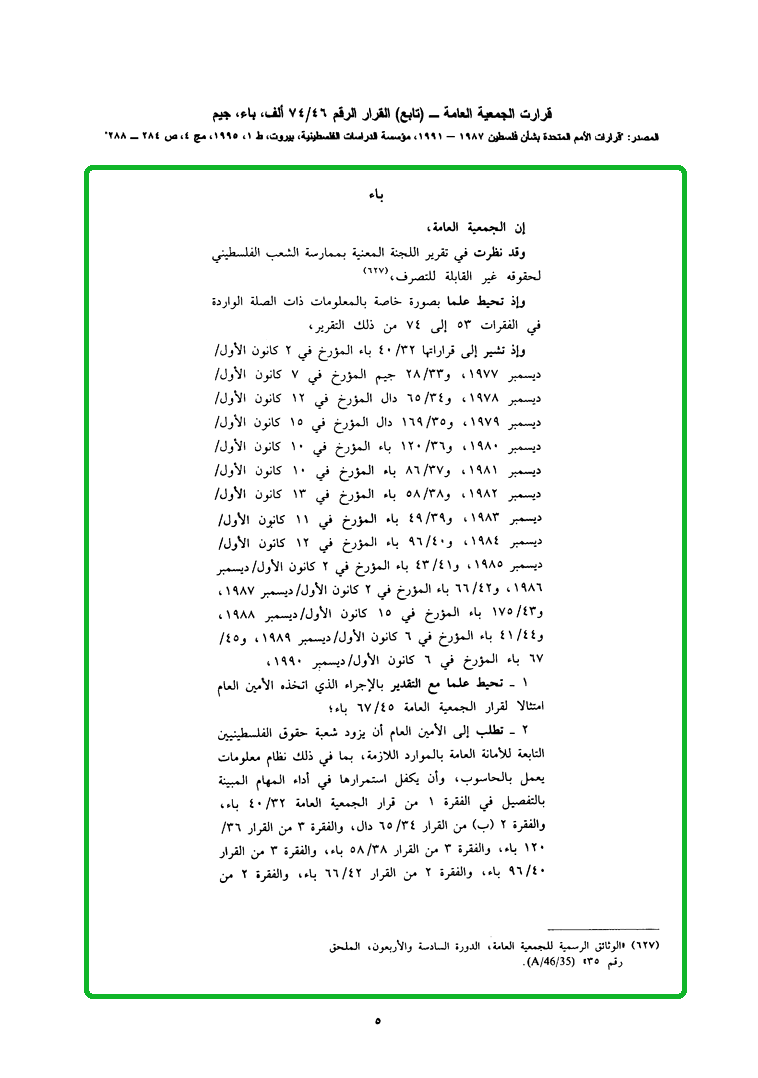 قرارت الجمعية العامة ــ (تابع) القرار الرقم ٧٤/٤٦ ألف، باء، جيم
المصدر: "قرارات الأمم المتحدة بشأن فلسطين ١٩٨٧ – ١٩٩١، مؤسسة الدراسات الفلسطينية، بيروت، ط ١، ١٩٩٥، مج ٤، ص ٢٨٤ ــ ٢٨٨"
باء
إن الجمعية العامة،
وقد نظرت في تقرير اللجنة المعنية بممارسة الشعب الفلسطيني
لحقوقه غير القابلة للتصرف،(٦٢٧)
وإذ تحيط علما بصورة خاصة بالمعلومات ذات الصلة الواردة
في الفقرات ٥٣ إلى ٧٤ من ذلك التقرير،
وإذ تشير إلى قراراتها ٤٠/٣٢ باء المؤرخ في ٢ كانون الأول/
ديسمبر ١٩٧٧، و٢٨/٣٣ جيم المؤرخ في ٧ كانون الأول/
ديسمبر ١٩٧٨، و٦٥/٣٤ دال المؤرخ في ١٢ كانون الأول/
ديسمبر ١٩٧٩، و١٦٩/٣٥ دال المؤرخ في ١٥ كانون الأول/
ديسمبر ١٩٨٠، و١٢٠/٣٦ باء المؤرخ في ١٠ كانون الأول/
ديسمبر ١٩٨١، و٨٦/٣٧ باء المؤرخ في ١٠ كانون الأول/
ديسمبر ١٩٨٢، و٥٨/٣٨ باء المؤرخ في ١٣ كانون الأول/
ديسمبر ١٩٨٣، و٤٩/٣٩ باء المؤرخ في ١١ كانون الأول/
ديسمبر ١٩٨٤، و٩٦/٤٠ باء المؤرخ في ١٢ كانون الأول/
ديسمبر ١٩٨٥، و٤٣/٤١ باء المؤرخ في ٢ كانون الأول/ديسمبر
١٩٨٦، و٦٦/٤٢ باء المؤرخ في ٢ كانون الأول/ديسمبر ١٩٨٧،
و١٧٥/٤٣ باء المؤرخ في ١٥ كانون الأول/ديسمبر ١٩٨٨،
و٤١/٤٤ باء المؤرخ في ٦ كانون الأول/ديسمبر ١٩٨٩، و٤٥/
٦٧ باء المؤرخ في ٦ كانون الأول/ديسمبر ١٩٩٠،
١ ـ تحيط علما مع التقدير بالإجراء الذي اتخذه الأمين العام
امتثالا لقرار الجمعية العامة ٦٧/٤٥ باء؛
٢ ـ تطلب إلى الأمين العام أن يزود شعبة حقوق الفلسطينيين
التابعة للأمانة العامة بالموارد اللازمة، بما في ذلك نظام معلومات
يعمل بالحاسوب، وأن يكفل استمرارها في أداء المهام المبينة
بالتفصيل في الفقرة ١ من قرار الجمعية العامة ٤٠/٣٢ باء،
والفقرة ٢ (ب) من القرار ٦٥/٣٤ دال، والفقرة ٣ من القرار ٣٦/
١٢٠ باء، والفقرة ٣ من القرار ٥٨/٣٨ باء، والفقرة ٣ من القرار
٩٦/٤٠ باء، والفقرة ٢ من القرار ٦٦/٤٢ باء، والفقرة ٢ من
(٦٢٧) «الوثائق الرسمية للجمعية العامة، الدورة السادسة والأربعون، الملحق
رقم ٣٥» (A/46/35).
٥